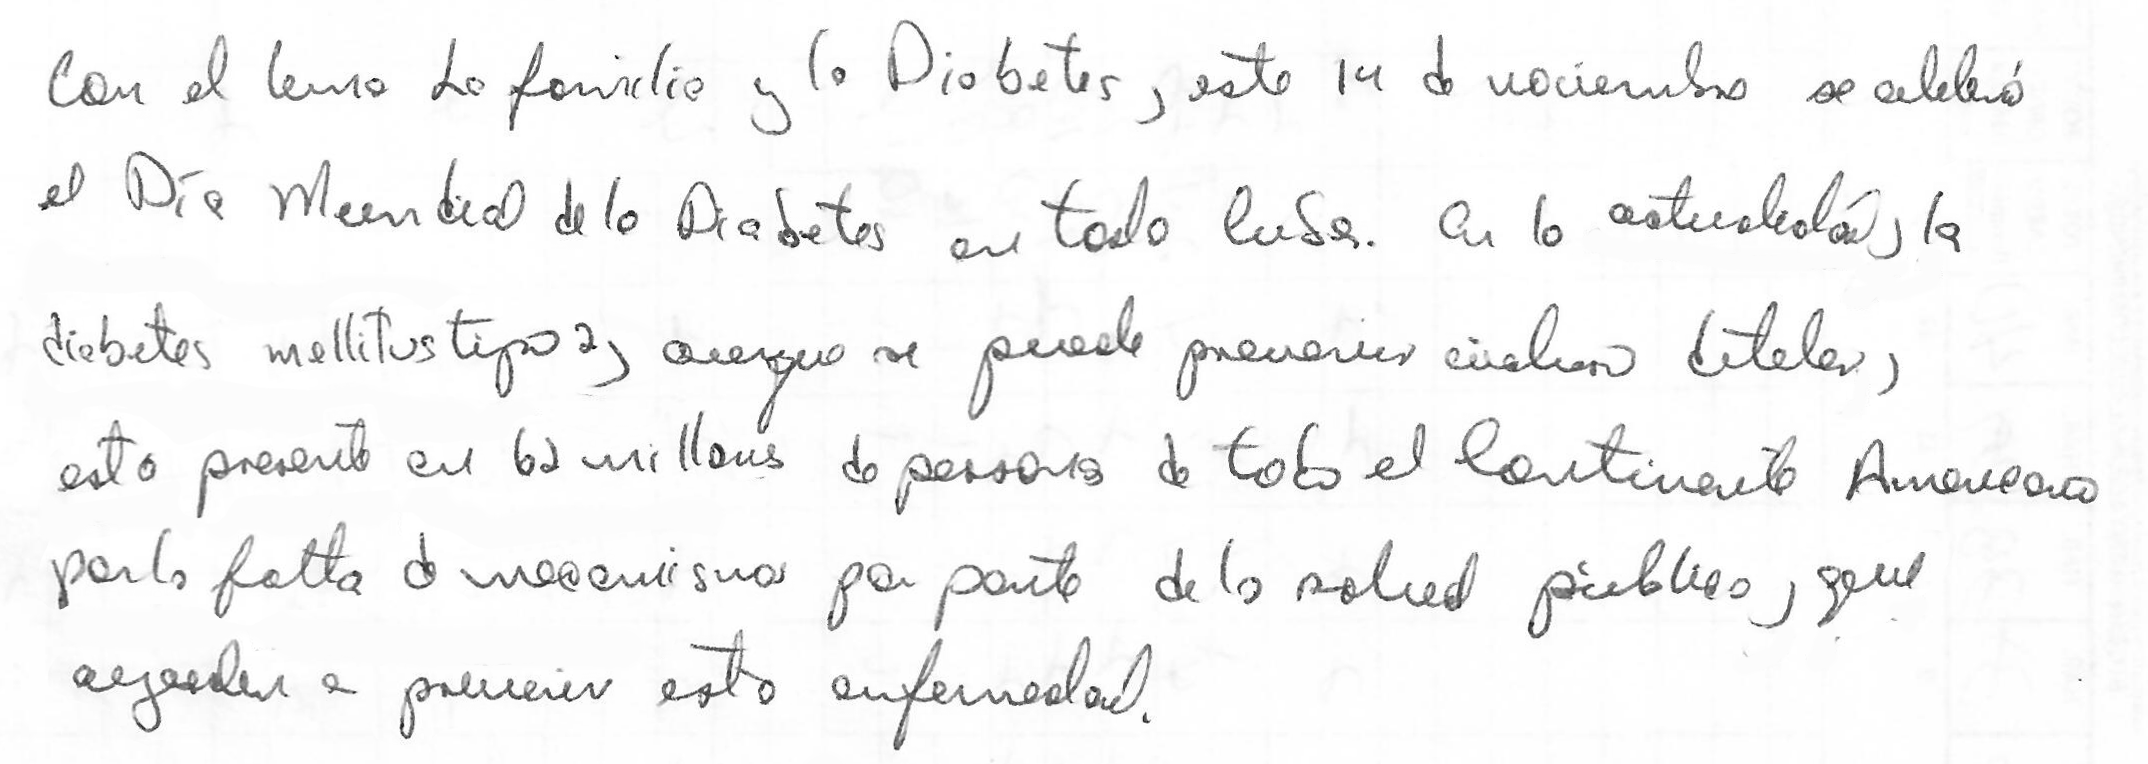 Con el lema La familia y la Diabetes, este 14 de noviembre se celebró
el Día Mundial de la Diabetes en todo Cuba. En la actualidad, la
diabetes mellitus tipo 2, aunque se puede prevenir incluso
esta presente en 62 millones de personas de todo el Continente Americano
por la falta de mecanismos por parte de la salud pública, que
ayuden a prevenir esta enfermedad.